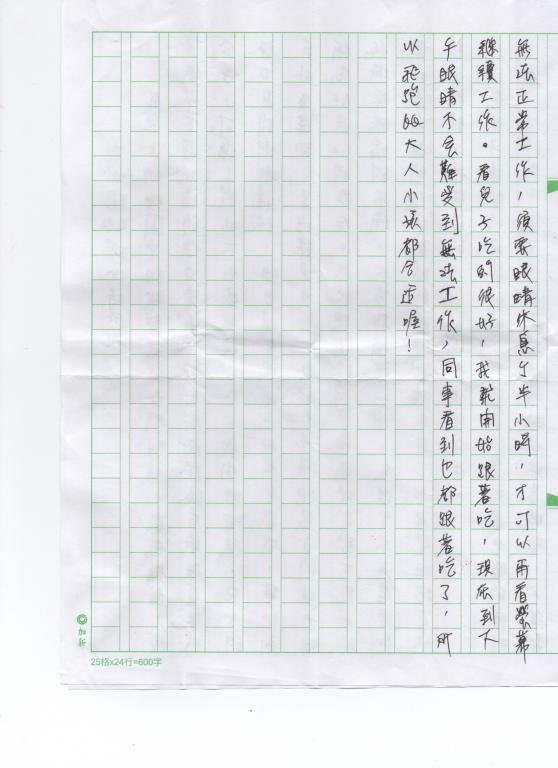 無法正常工作，須要眼睛休息個半小時，才可以再看螢幕
繼續工作。看兒子吃的很好，我就開始跟著吃，現在到下
午眼睛不会難受到無法工作，同事看到也都跟著吃了，所
以飛跑的大人小孩都合适喔！
加新
25格x24行=600字